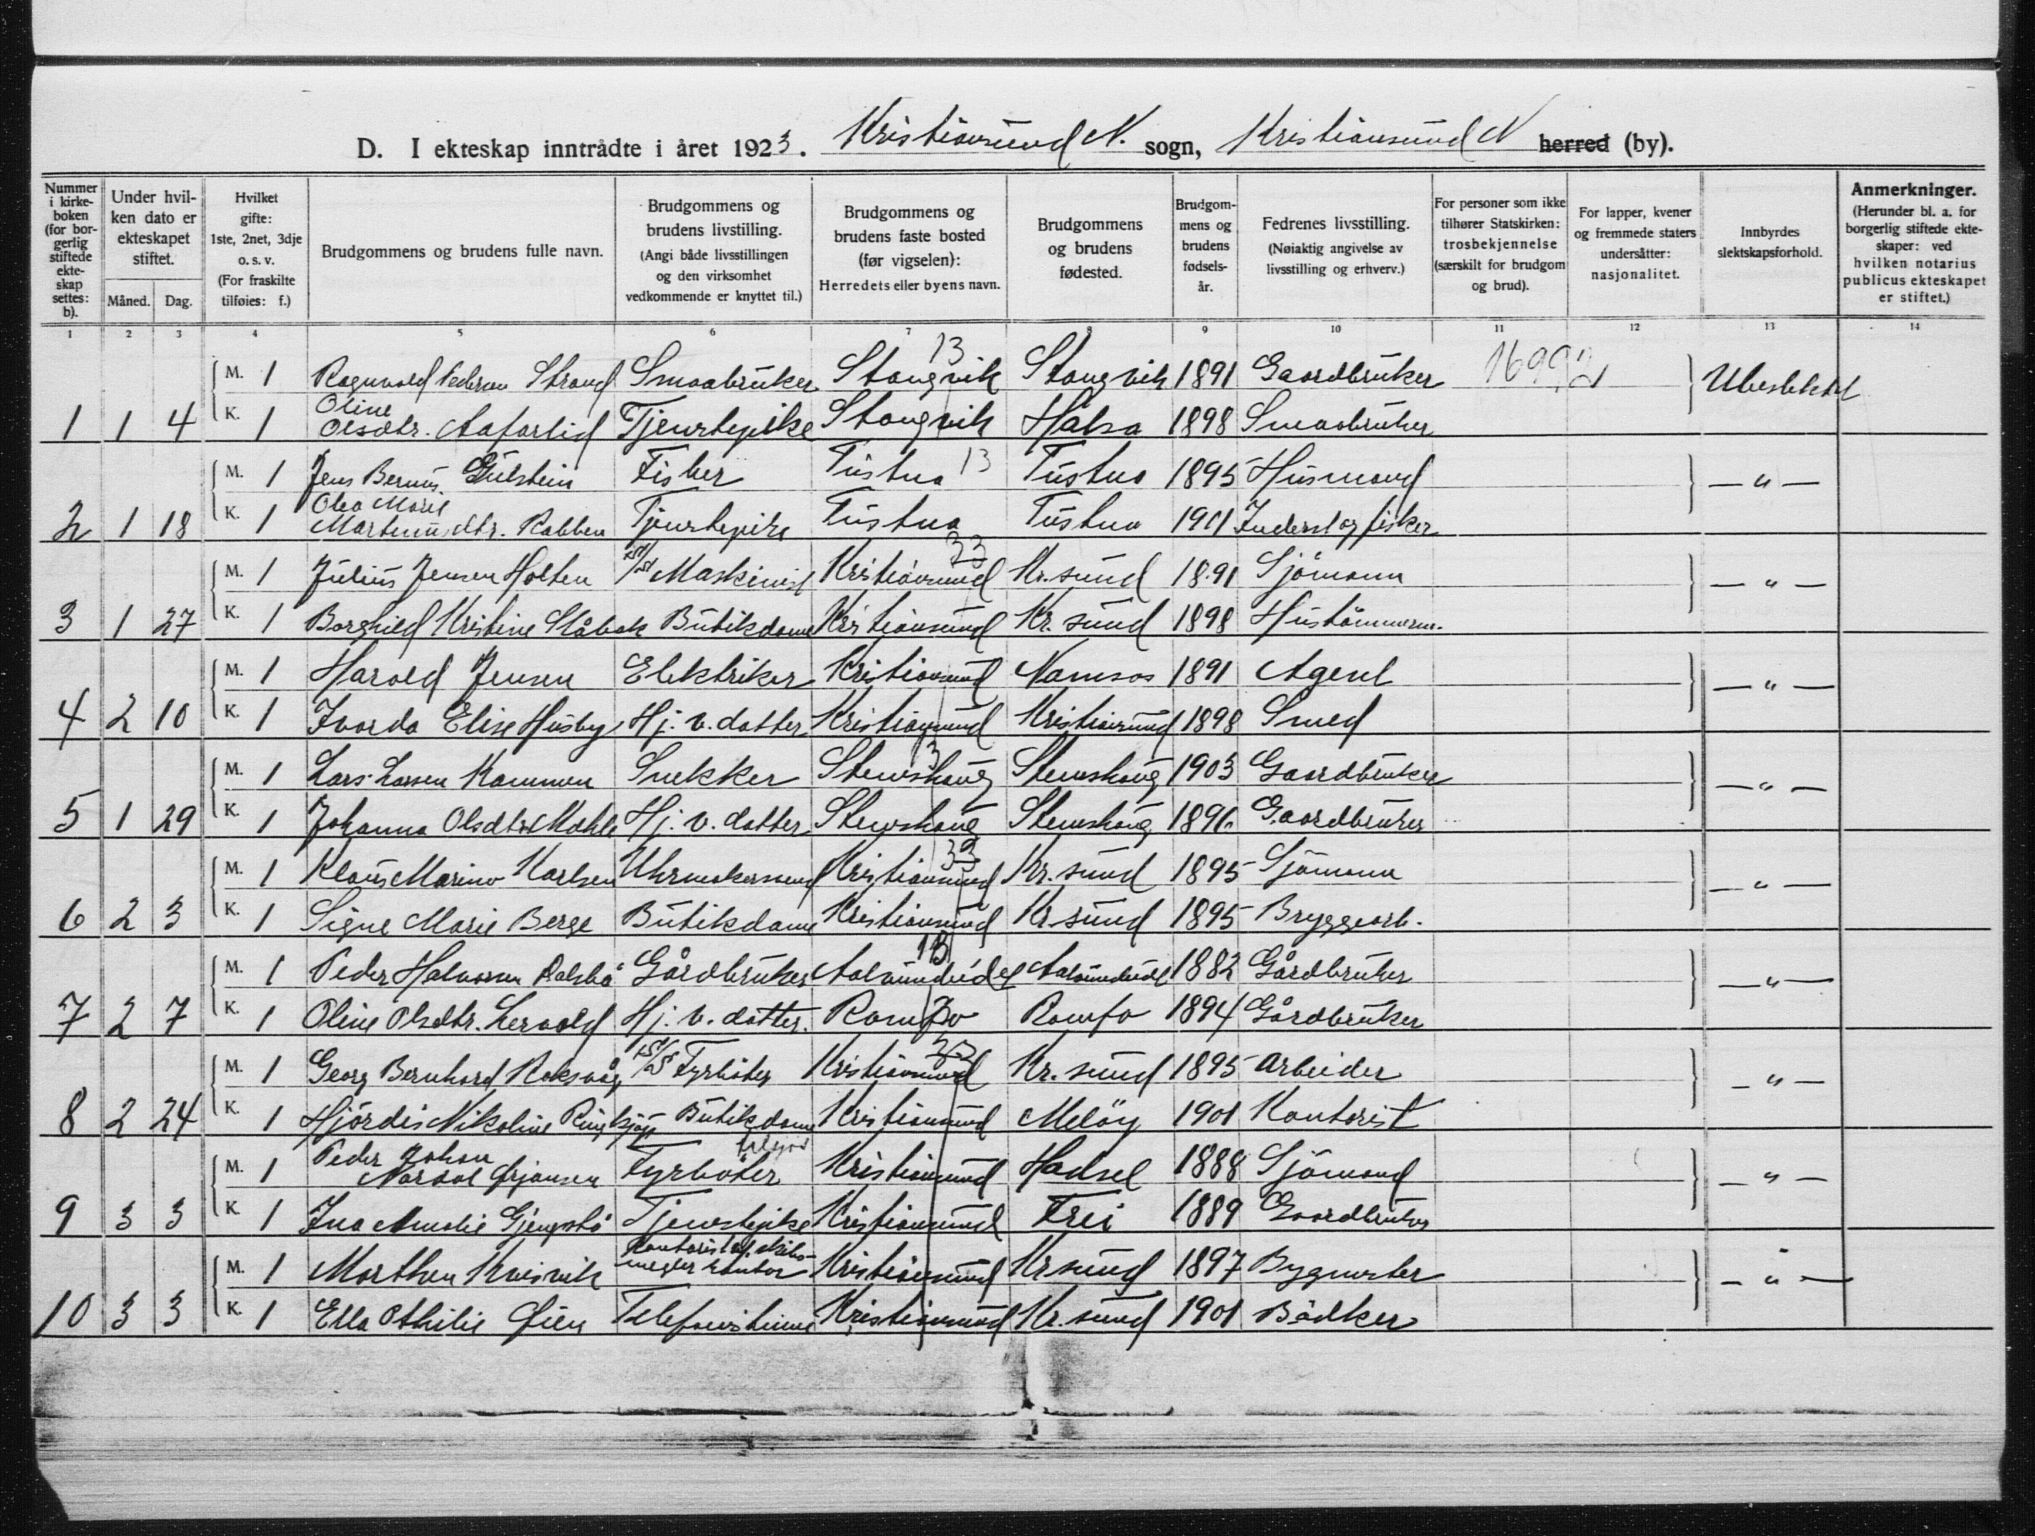 D. I ekteskap inntrådte i året 1923. Kristiansund N. sogn, Kristiansund N herred (by).
Nummer i kirke-boken (for bor-gerlig stiftede ekte-skap settes: b).
Under hvil-ken dato er ekteskapet stiftet.
Måned. Dag.
Hvilket gifte: 1ste, 2net, 3dje o. s. v. (For fraskilte tilføies: f.)
Brudgommens og brudens fulle navn.
Brudgommens og brudens livstilling. (Angi både livsstillingen og den virksomhet vedkommende er knyttet til.)
Brudgommens og brudens faste bosted (før vigselen): Herredets eller byens navn.
Brudgommens og brudens fødested.
Brudgom-mens og brudens fødsels-år.
Fedrenes livsstilling. (Nøiaktig angivelse av livsstilling og erhverv.)
For personer som ikke tilhører Statskirken: trosbekjennelse (særskilt for brudgom og brud).
For lapper, kvener og fremmede staters undersåtter: nasjonalitet.
Innbyrdes slektskapsforhold.
Anmerkninger. (Herunder bl. a. for borgerlig stiftede ekte-skaper: ved hvilken notarius publicus ekteskapet er stiftet.)
1 2 3 4 5 6 7 8 9 10 11 12 13 14
13
M. 1 Ragnvald Pedersen Strand Smaabruker Stangvik Stangvik 1891 Gaardbruker 16992 Ubeslektet
1 1 4 K. 1 Oline Olsdtr. Aafarlid Tjenestepike Stangvik Halsa 1898 Smaabruker
M. 1 Jens Bernus Gulstein Fisker Tustna 13 Tustna 1895 Husmand — " —
2 1 18 K. 1 Olea Marie Martinusdtr. Rabben Tjenestepike Tustna Tustna 1901 Inderst og fisker
33
M. 1 Julius Jensen Holten Maskinist Kristiansund Kr. sund 1891 Sjömann — " —
3 1 27 K. 1 Borghild Kristine Butikdame Kristiansund Kr. sund 1898 Hustömmerm.
M. 1 Harald Jensen Elektriker Kristiansund Namsos 1891 Agent — " —
4 2 10 K. 1 Elise Husby Hj. v. datter Kristiansund Kristiansund 1898 Smed
13
M. 1 Lars Larsen Kammen Snekker Stemshaug Stemshaug 1903 Gaardbruker — " —
5 1 29 K. 1 Johanna Olsdtr. Hj. v. datter Stemshaug Stemshaug 1896 Gaardbruker
33
M. 1 Klaus Marino Karlsen Uhrmakersvend Kristiansund Kr. sund 1895 Sjömann — " —
6 2 3 K. 1 Signe Marie Berge Butikdame Kristiansund Kr. sund 1895 Bryggearb.
13
M. 1 Peder Halvorsen Gårdbruker Aalvundeidet Aalvundeidet 1882 Gårdbruker — " —
7 2 7 K. 1 Oline Olsdtr. Hj. v. datter. Romfo Romfo 1894 Gårdbruker
33
M. 1 Georg Bernhard Roksvåg Fyrböter Kristiansund Kr. sund 1895 Arbeider — " —
8 2 24 K. 1 Hjördis Nikoline Butikdame Kristiansund Melöy 1901 Kontorist
M. 1 Peder Johan Ørjansen Fyrböter Kristiansund Hadsel 1888 Sjömand — " —
9 3 3 K. 1 Ina Amalie Gjengstö Tjenestepike Kristiansund Frei 1889 Gaardbruker
M. 1 Morthen Kvisvik Kontorist megler kontor Kristiansund Kr. sund 1897 Bygmester — " —
10 3 3 K. 1 Ella Othilie Øien Telefonistinne Kristiansund Kr. sund 1901 Bödker